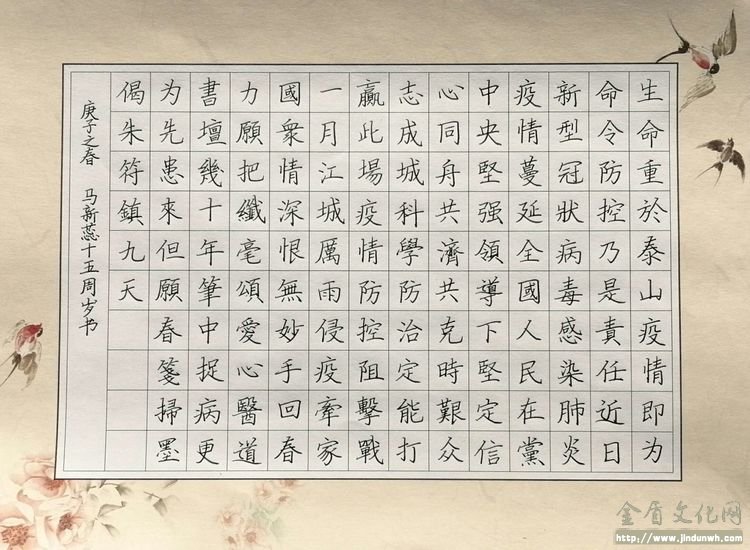 生命重於泰山疫情即为
命令防控乃是責任近日
新型冠狀病毒感染肺炎
疫情蔓延全國人民在黨
中央堅强領導下堅定信
心同舟共濟共克時艱众
志成城科學防治定能打
贏此場疫情防控阻擊戰
一月江城厲雨侵疫牽家
國衆情深恨無妙手回春
力願把纖毫頌愛心醫道
書壇幾十年筆中捉病更
为先患來但願春箋掃墨
偈朱符鎮九天
庚子之春 马新蕊十五周岁书
金盾文化网
http://www.jindunwh.com